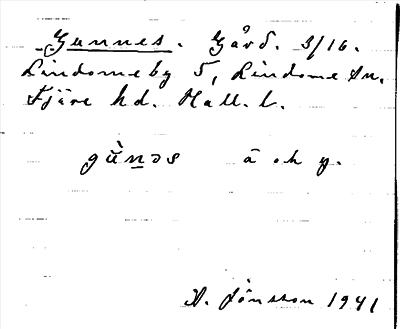 Gunnes. Gård. 3/16.
Lindomeby 5, Lindome sn.
Fjäre hd. Hall. l.
gù̱nəs ä och y.
A. Jönsson 1941